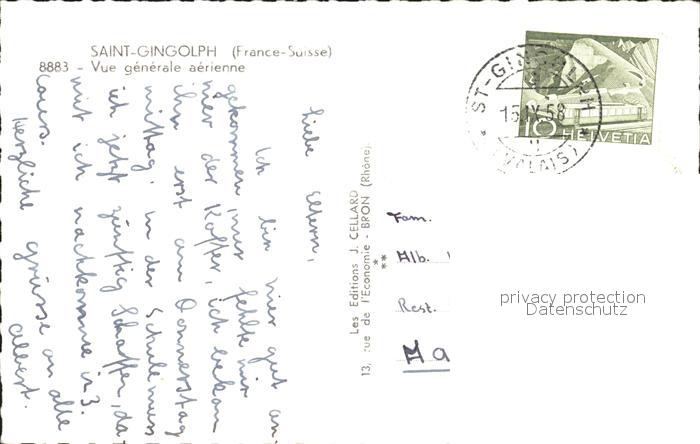 SAINT-GINGOLPH (France-Suisse)
8883 - Vue générale aérienne
Liebe Eltern,
Ich bin hier gut an
gekommen, nur fehlte mir
hier der Koffer, ich bekam
ihn erst am Donnerstag
mittag. In der Schule muss
ich jetzt zünftig Schaffen, da
mit ich nachkomme in 3.
Cours.
Herzliche Grüsse an alle
Albert.
Les Editions J. CELLARD
13, rue de l'Economie - BRON (Rhône).
ST-GINGOLPH
15.IX.58
(VALAIS)
10 HELVETIA
Fam.
Alb.
Rest.
Ma
privacy protection
Datenschutz